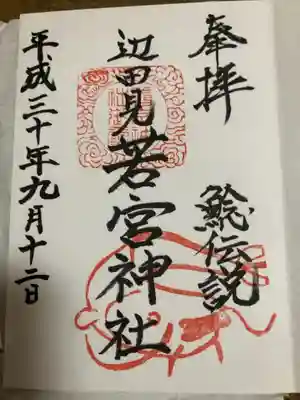 奉拝
鯰伝説
辺田見若宮神社
平成三十年九月十二日